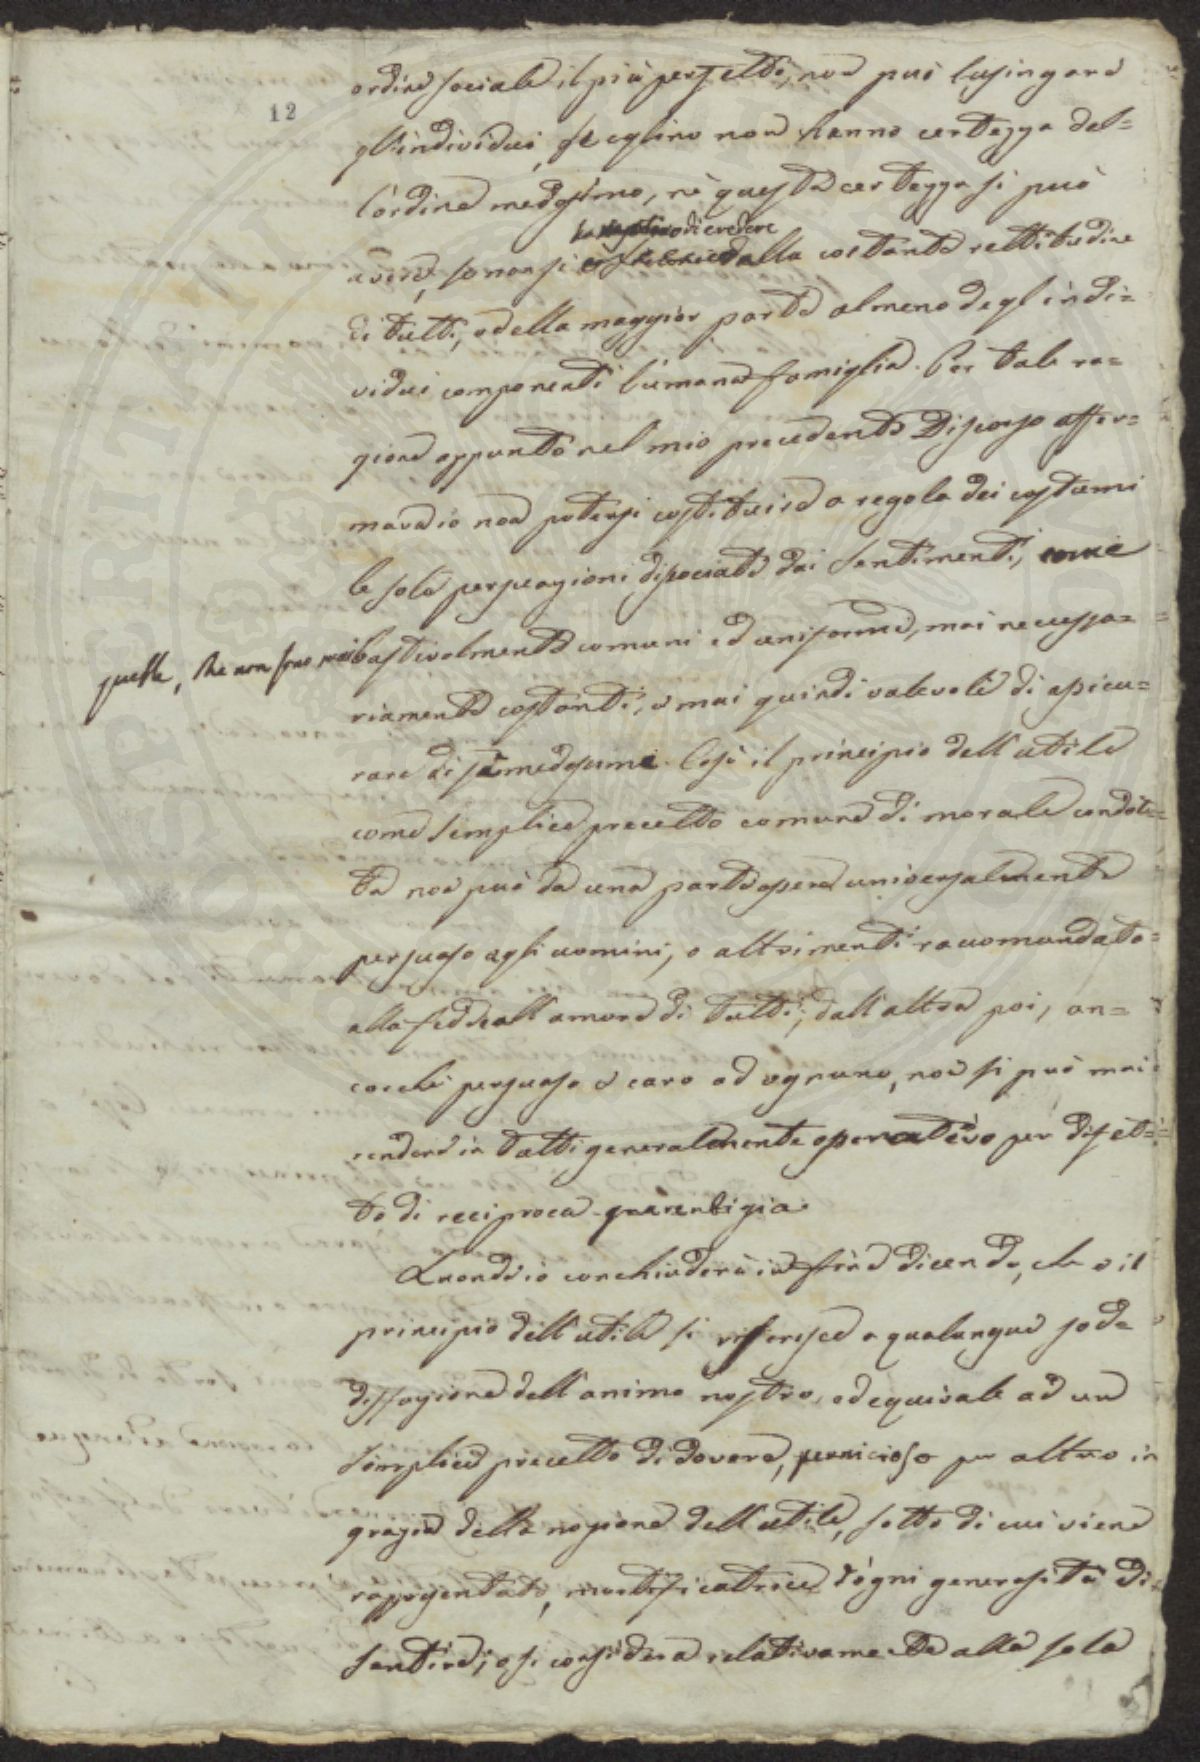 12
ordine sociale il più perfetto, non può lusingare
gl'individui, se eglino non hanno certezza del=
l'ordine medesimo, nè questa certezza si può
di credere
avere, se non si dalla costante rettitudine
di tutti, o della maggior parte almeno degl'indi=
vidui componenti l'umana famiglia. Per tale ra=
gione appunto nel mio precedente Discorso affer=
mava io non potersi costituire a regola dei costumi
le sole persuasioni dissociate dai sentimenti, come
quelle, che non sono mai bastevolmente comuni ed uniformi, mai necessa=
riamente costanti, e mai quindi valevoli di assicu=
rare di se medesime. Così il principio dell'utile
come semplice precetto comune di morale condot=
ta non può da una parte essere universalmente
persuaso agli uomini, o altrimenti raccomandato
alla fede all'amore di tutti; dall'altra poi, an=
cocchè persuaso e caro ad ognuno, non si può mai
rendere in tutti generalmente operativo per difet=
to di reciproca guarentigia.
Quond'io conchiuderò in fine dicendo, che o il
principio dell'utile si riferisce a qualunque sode=
disfazione dell'animo nostro, ed equivale ad un
semplice precetto di dovere, pernicioso per altro in
grazia della nozione dell'utile, sotto di cui viene
rappresentato, mortificatrice d'ogni generosità di
sentire; o si considera relativamente alla sola